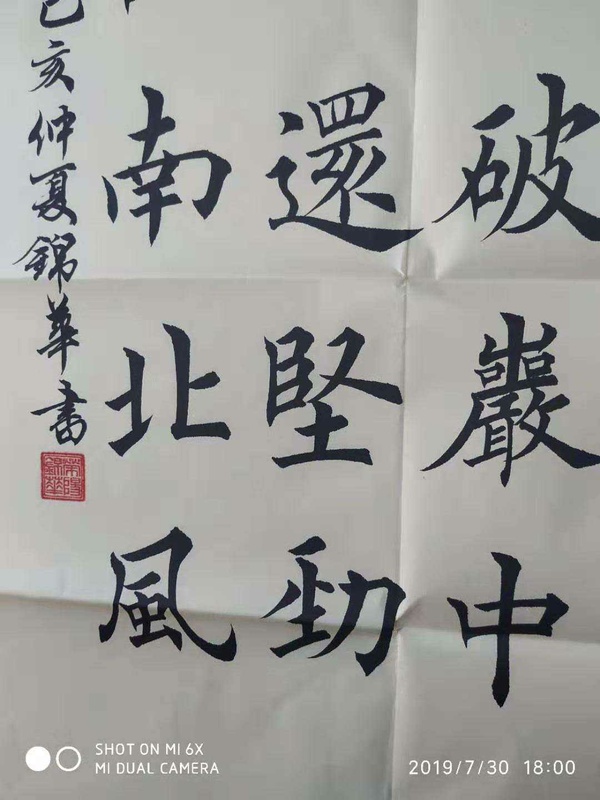 破巖中
還堅勁
南北風
己亥仲夏錦華書
SHOT ON MI 6X
MI DUAL CAMERA
2019/7/30 18:00